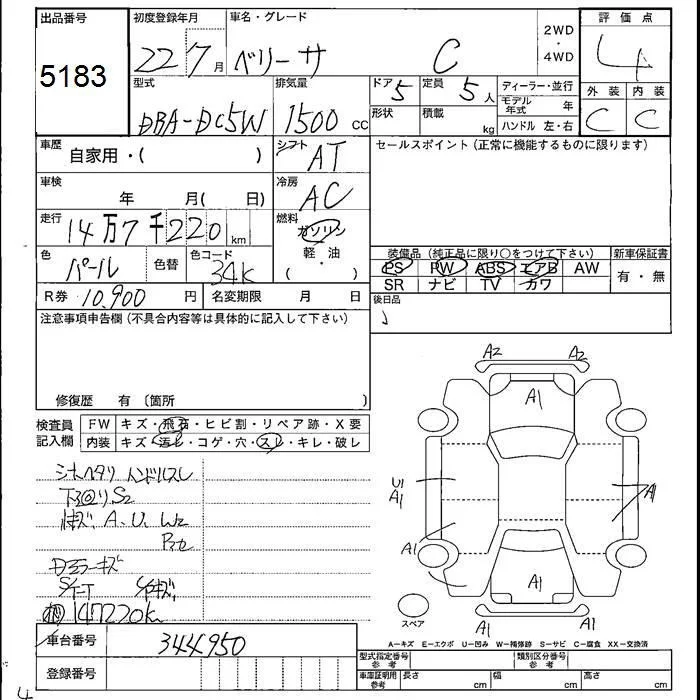 出品番号 初度登録年月 車名・グレード 2WD・4WD 評価点
5183 22 7月 ベリーサ C 4
型式 排気量 ドア 5 定員 5人 ディーラー・並行 外装 内装
DBA-DC5W 1500cc 形状 積載 kg モデル年式 年 C C
ハンドル 左・右
車歴 自家用・( ) シフト AT セールスポイント(正常に機能するものに限ります)
車検 年 月( 日) 冷房 AC
走行 14万7千220km 燃料 ガソリン
軽・油
( )
色 パール 色替 色コード 34K
装備品(純正品に限り○をつけて下さい) 新車保証書
PS PW ABS エアB AW 有・無
SR ナビ TV カワ
R券 10,900円 名変期限 月 日 後日品
注意事項申告欄(不具合内容等は具体的に記入して下さい)
修復歴 有 〔箇所 〕
検査員記入欄 FW キズ・飛石・ヒビ割・リペア跡・X要
内装 キズ・汚レ・コゲ・穴・スレ・キレ・破レ
シートヘタリ ハンドルスレ
下回りS2
A.U.W2
Dミラーキズ
147220k
A2 A2
A1
U1
A1
A1
A1
A1
A1 A1
スペア
A-キズ E-エクボ U-凹み W-補修跡 S-サビ C-腐食 XX-交換済
車台番号 344950
登録番号
型式指定番号 参考 類別区分番号 参考
車庫証明用 参考 長さ cm 幅 cm 高さ cm
4